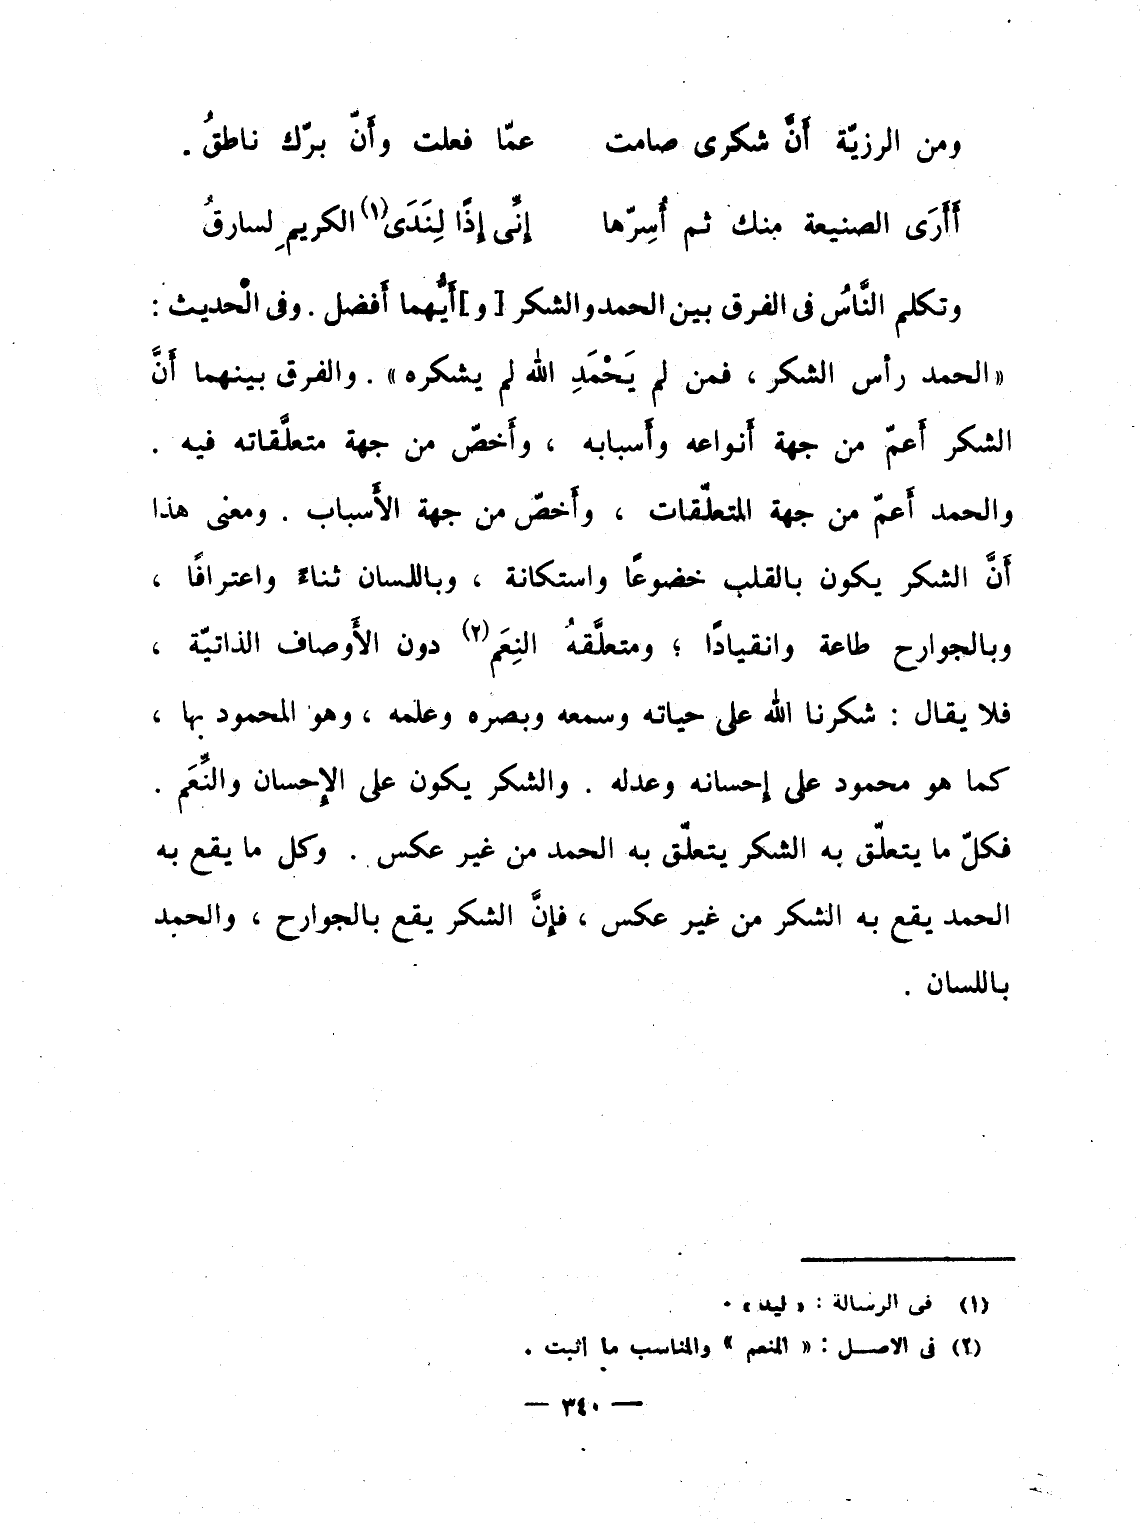 ومن الرزيّة أَنَّ شكرى صامت عمّا فعلت وأَنّ برّك ناطقُ .
أَأَرَى الصنيعة منك ثم أُسِرّها إِنِّى إِذًا لِنَدَى(١) الكريمِ لسارقُ
وتكلم النَّاسُ فى الفرق بين الحمد والشكر [و] أَيُّهما أَفضل . وفى الْحديث :
«الحمد رأس الشكر ، فمن لم يَحْمَدِ الله لم يشكره» . والفرق بينهما أَنَّ
الشكر أَعمّ من جهة أَنواعه وأَسبابه ، وأَخصّ من جهة متعلَّقاته فيه .
والحمد أَعمّ من جهة المتعلّقات ، وأَخصّ من جهة الأَسباب . ومعنى هذا
أَنَّ الشكر يكون بالقلب خضوعًا واستكانة ، وباللسان ثناءً واعترافًا ،
وبالجوارح طاعة وانقيادًا ؛ ومتعلَّقهُ النِعَم(٢) دون الأَوصاف الذاتيّة ،
فلا يقال : شكرنا الله على حياته وسمعه وبصره وعلمه ، وهو المحمود بها ،
كما هو محمود على إِحسانه وعدله . والشكر يكون على الإِحسان والنِّعَم .
فكلّ ما يتعلّق به الشكر يتعلّق به الحمد من غير عكس . وكل ما يقع به
الحمد يقع به الشكر من غير عكس ، فإِنَّ الشكر يقع بالجوارح ، والحمد
باللسان .
(١) فى الرسالة : « ليد» .
(٢) فى الاصل : « المنعم » والمناسب ما أثبت .
— ٣٤٠ —